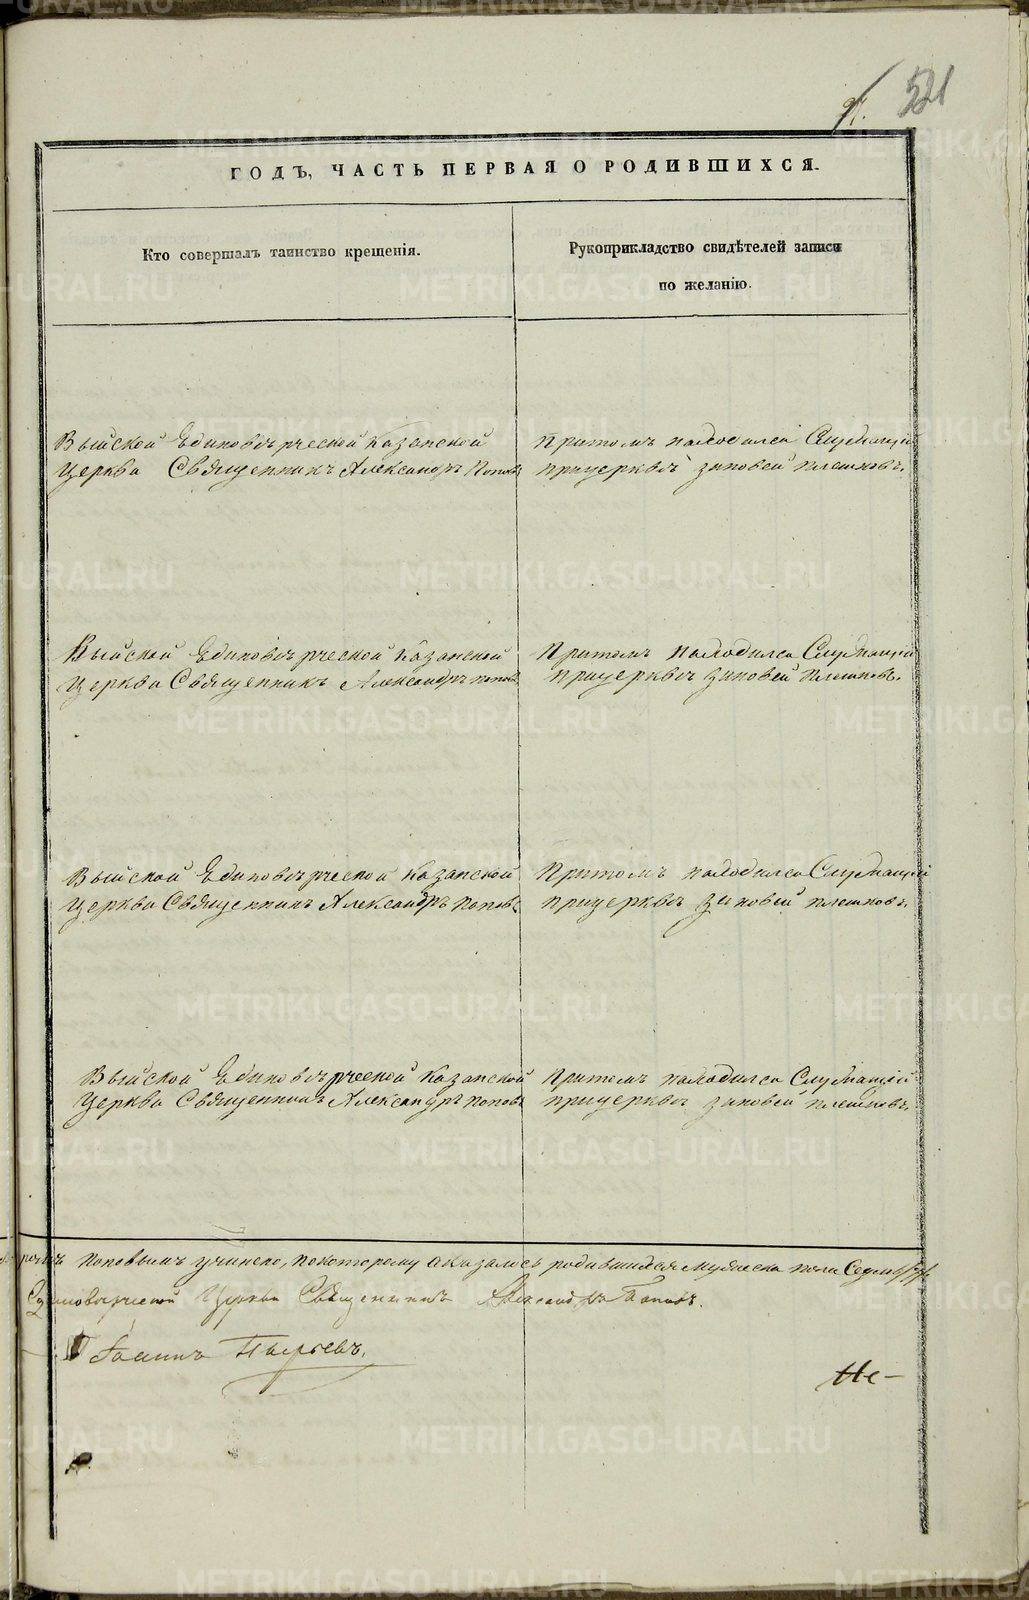 521
ГОДЪ, ЧАСТЬ ПЕРВАЯ О РОДИВШИХСЯ.
Кто совершалъ таинство крещенія.
Рукоприкладство свидѣтелей записи
по желанію.
Выйской Единовѣрческой Казанской
Церкви Священникъ Александръ Поповъ
Притомъ находился Служащій
прицерквѣ Зиновей Плешковъ.
Выйской Единовѣрческой Казанской
Церкви Священникъ Александръ Поповъ
Притомъ находился Служащій
прицерквѣ Зиновей Плешковъ.
Выйской Единовѣрческой Казанской
Церкви Священникъ Александръ Поповъ
Притомъ находился Служащій
прицерквѣ Зиновей Плешковъ.
Выйской Единовѣрческой Казанской
Церкви Священникъ Александръ Поповъ
Притомъ находился Служащій
прицерквѣ Зиновей Плешковъ.
Поповымъ учинено, покоторому оказалось родившихся мужеска пола
Единовѣрческой Церкви Священникъ Александръ Поповъ.
Іоаннъ
METRIKI.GASO-URAL.RU